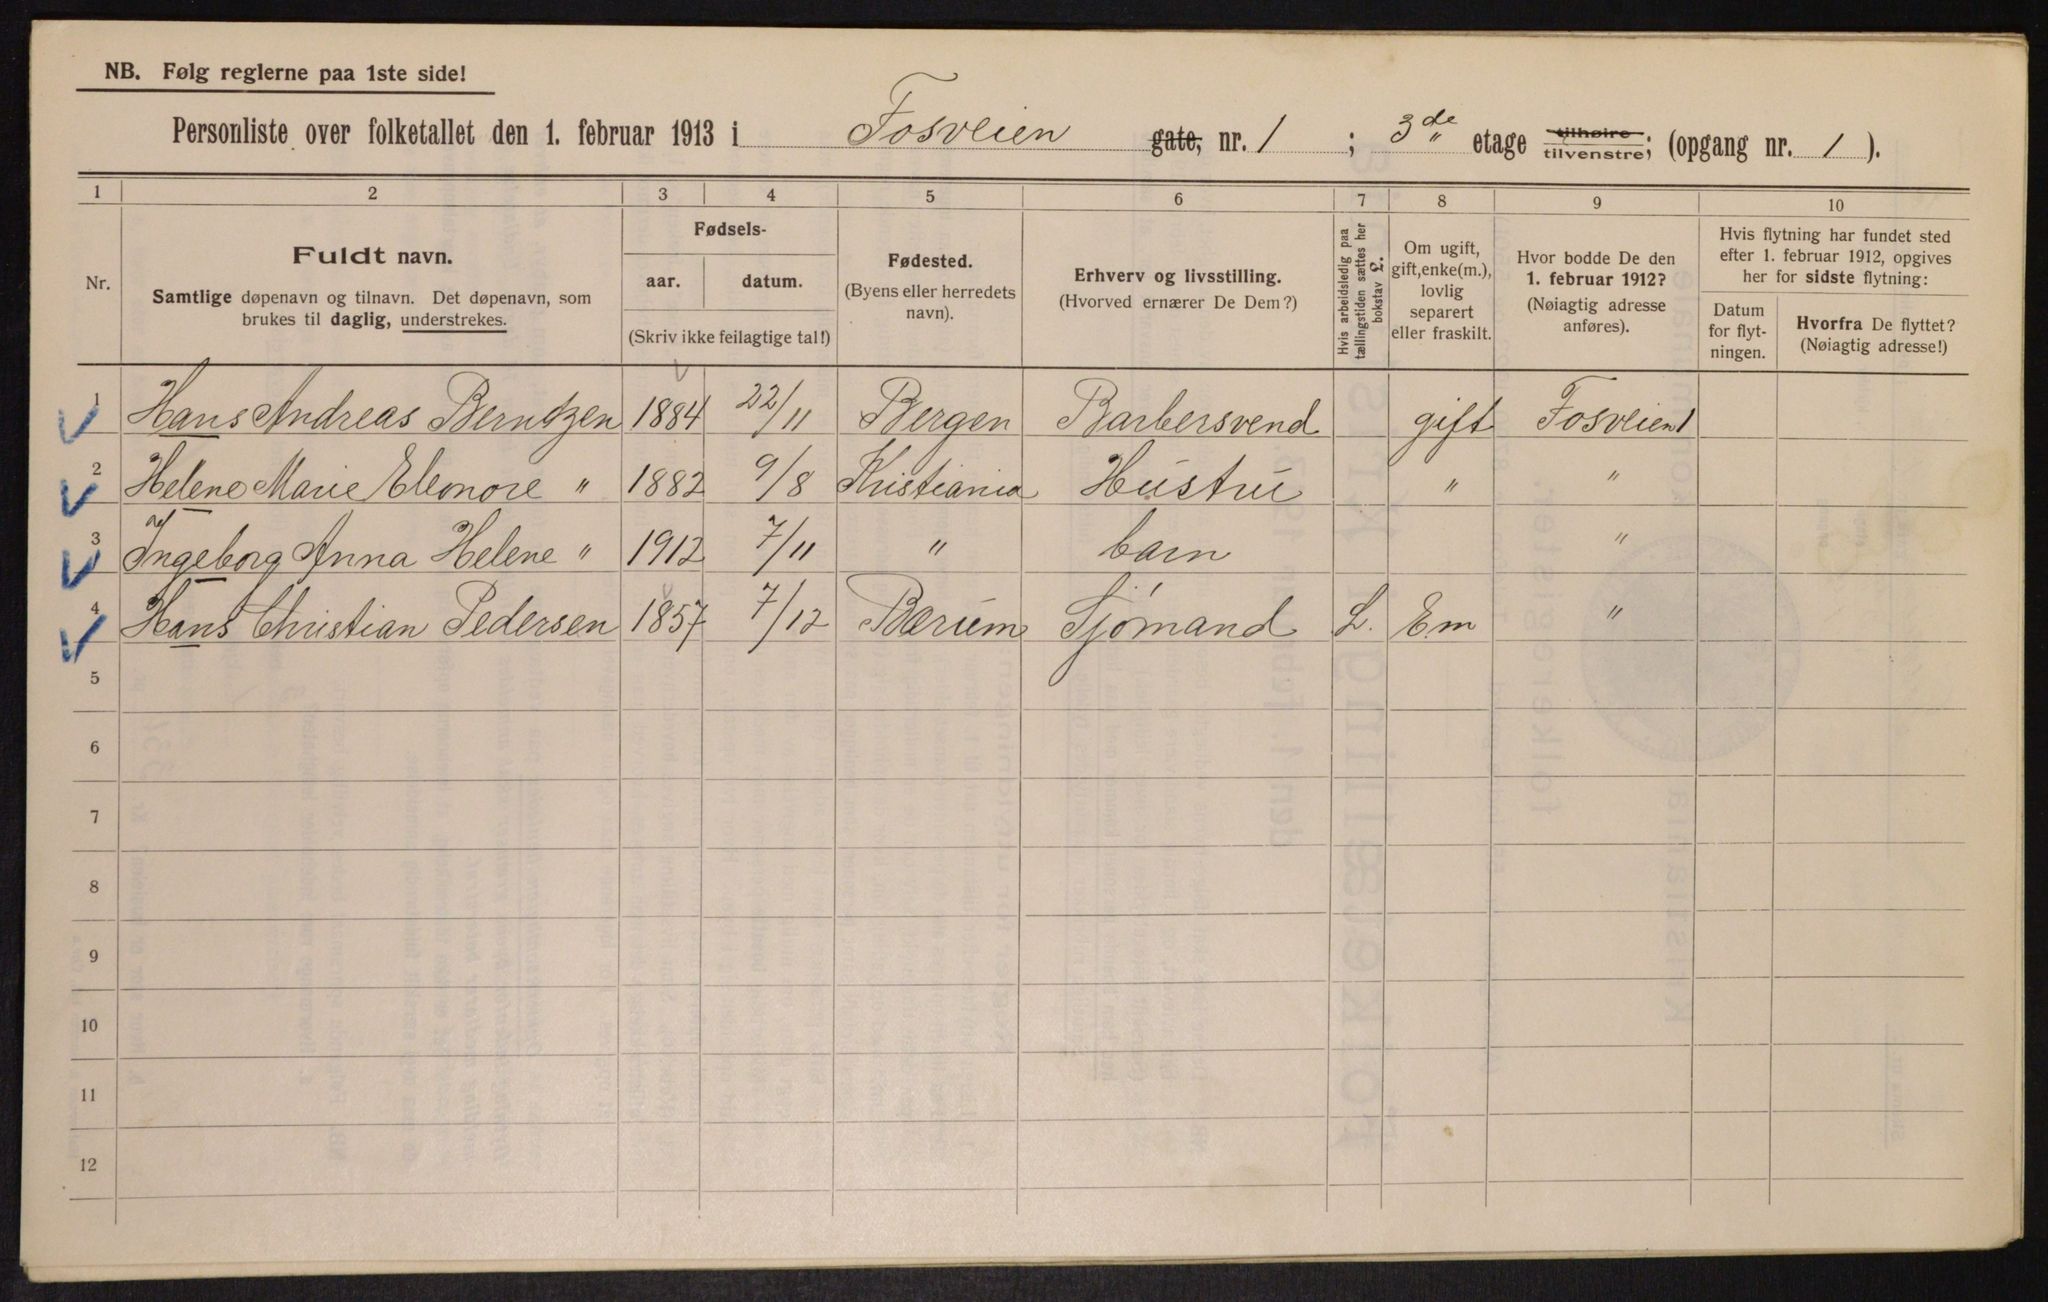 NB. Følg reglerne paa 1ste side!
Personliste over folketallet den 1. februar 1913 i Fosveien gate, nr. 1 ; 3de etage tilhøire tilvenstre; (opgang nr. 1 ).
1 2 3 4 5 6 7 8 9 10
Nr.
Fuldt navn.
Samtlige døpenavn og tilnavn. Det døpenavn, som
brukes til daglig, understrekes.
Fødsels-
aar. datum.
(Skriv ikke feilagtige tal!)
Fødested.
(Byens eller herredets
navn).
Erhverv og livsstilling.
(Hvorved ernærer De Dem?)
Hvis arbeidsledig paa
tællingstiden sættes her
bokstav L.
Om ugift,
gift, enke(m.),
lovlig
separert
eller fraskilt.
Hvor bodde De den
1. februar 1912?
(Nøiagtig adresse
anføres).
Hvis flytning har fundet sted
efter 1. februar 1912, opgives
her for sidste flytning:
Datum
for flyt-
ningen.
Hvorfra De flyttet?
(Nøiagtig adresse!)
1 Hans Andreas Berntzen 1884 22/11 Bergen Barbersvend gift Fosveien 1
2 Helene Marie Eleonore " 1882 9/8 Kristiania Hustru " "
3 Ingeborg Anna Helene " 1912 7/11 " barn "
4 Hans Christian Pedersen 1857 7/12 Bærum Sjömand L. Em "
5
6
7
8
9
10
11
12